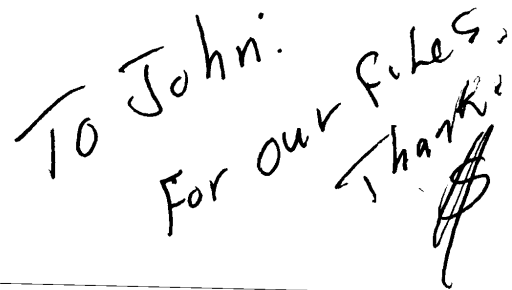 To John:
For our files.
Thank.